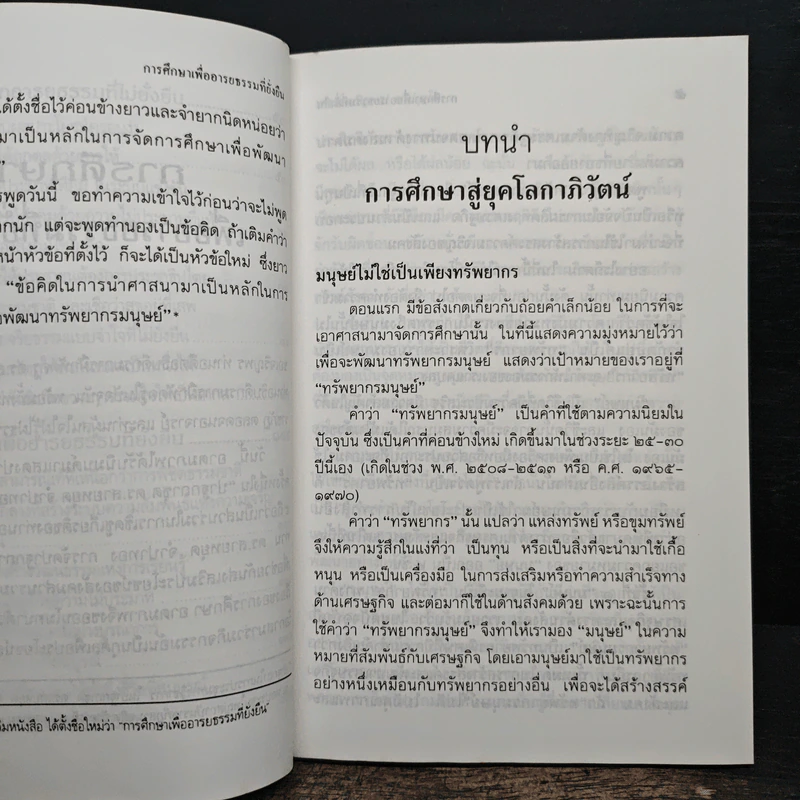 การศึกษาเพื่ออารยธรรมที่ยั่งยืน
ได้ตั้งชื่อไว้ค่อนข้างยาวและจำยากนิดหน่อยว่า
มาเป็นหลักในการจัดการศึกษาเพื่อพัฒนา
”
รพูดวันนี้ ขอทำความเข้าใจไว้ก่อนว่าจะไม่พูด
ากนัก แต่จะพูดทำนองเป็นข้อคิด ถ้าเติมคำว่า
หน้าหัวข้อที่ตั้งไว้ ก็จะได้เป็นหัวข้อใหม่ ซึ่งยาว
“ข้อคิดในการนำศาสนามาเป็นหลักในการ
อพัฒนาทรัพยากรมนุษย์”*
มหนังสือ ได้ตั้งชื่อใหม่ว่า “การศึกษาเพื่ออารยธรรมที่ยั่งยืน”
บทนำ
การศึกษาสู่ยุคโลกาภิวัตน์
มนุษย์ไม่ใช่เป็นเพียงทรัพยากร
ตอนแรก มีข้อสังเกตเกี่ยวกับถ้อยคำเล็กน้อย ในการที่จะ
เอาศาสนามาจัดการศึกษานั้น ในที่นี้แสดงความมุ่งหมายไว้ว่า
เพื่อจะพัฒนาทรัพยากรมนุษย์ แสดงว่าเป้าหมายของเราอยู่ที่
“ทรัพยากรมนุษย์”
คำว่า “ทรัพยากรมนุษย์” เป็นคำที่ใช้ตามความนิยมใน
ปัจจุบัน ซึ่งเป็นคำที่ค่อนข้างใหม่ เกิดขึ้นมาในช่วงระยะ ๒๕-๓๐
ปีนี้เอง (เกิดในช่วง พ.ศ. ๒๕๐๘-๒๕๑๓ หรือ ค.ศ. ๑๙๖๕-
๑๙๗๐)
คำว่า “ทรัพยากร” นั้น แปลว่า แหล่งทรัพย์ หรือขุมทรัพย์
จึงให้ความรู้สึกในแง่ที่ว่า เป็นทุน หรือเป็นสิ่งที่จะนำมาใช้เกื้อ
หนุน หรือเป็นเครื่องมือ ในการส่งเสริมหรือทำความสำเร็จทาง
ด้านเศรษฐกิจ และต่อมาก็ใช้ในด้านสังคมด้วย เพราะฉะนั้นการ
ใช้คำว่า “ทรัพยากรมนุษย์” จึงทำให้เรามอง “มนุษย์” ในความ
หมายที่สัมพันธ์กับเศรษฐกิจ โดยเอามนุษย์มาใช้เป็นทรัพยากร
อย่างหนึ่งเหมือนกับทรัพยากรอย่างอื่น เพื่อจะได้สร้างสรรค์